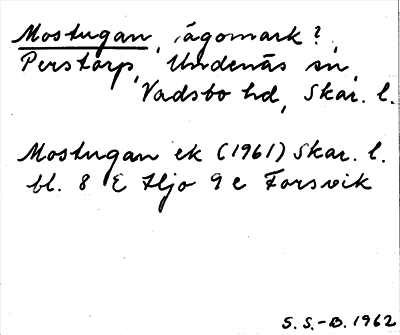 Mostugan, ägomark?,
Perstorp, Undenäs sn,
Vadsbo hd, Skar. l.
Mostugan ek (1961) Skar. l.
bl. 8 E Hjo 9 e Forsvik
S. S.-B. 1962